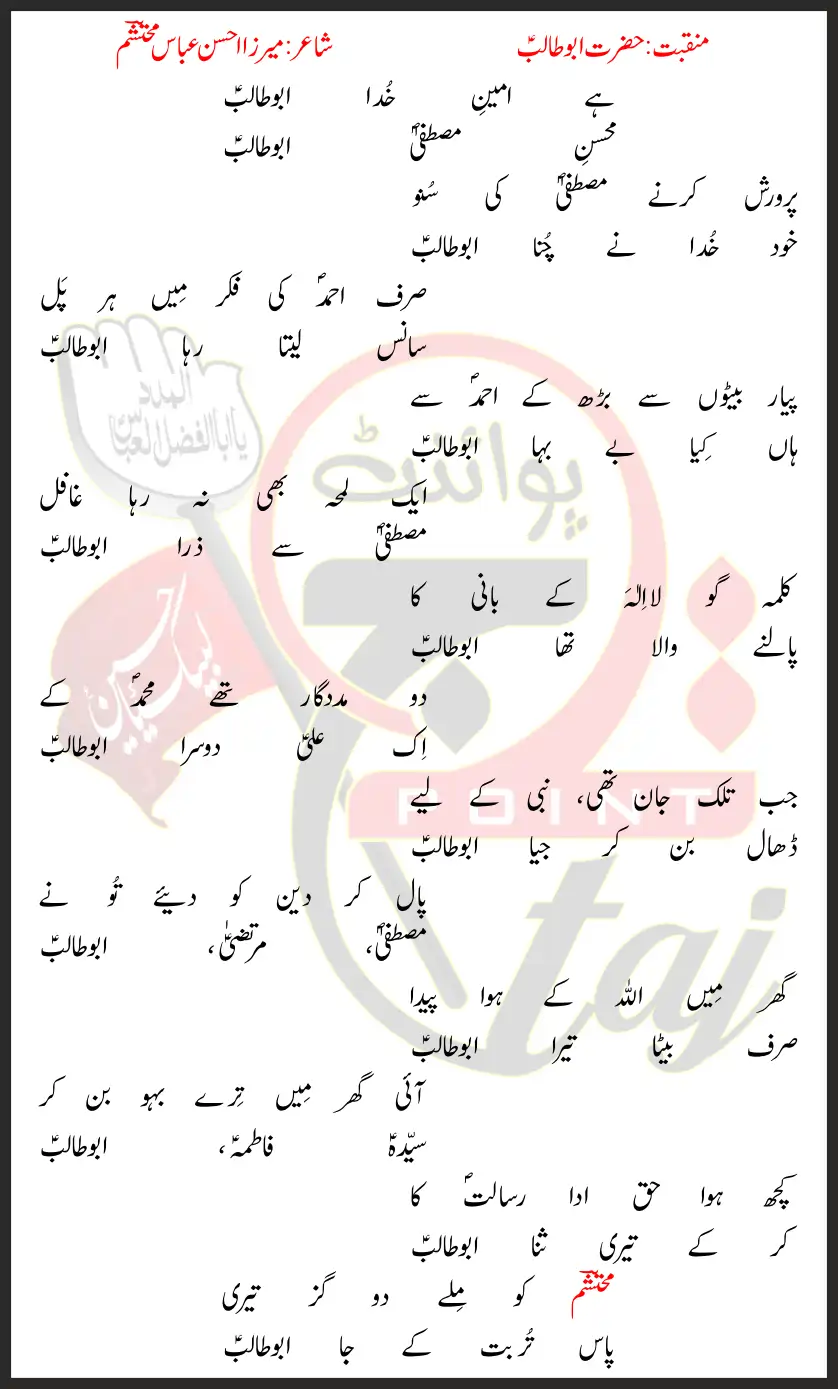 منقبت: حضرت ابوطالبؑ شاعر: میرزا احسن عباس محتشؔم
ہے امینِ خُدا ابوطالبؑ
محسنِ مصطفیؐ ابوطالبؑ
پرورش کرنے مصطفیؐ کی سُنو
خود خُدا نے چُنا ابوطالبؑ
صرف احمدؐ کی فکر مِیں ہر پَل
سانس لیتا رہا ابوطالبؑ
پیار بیٹوں سے بڑھ کے احمدؐ سے
ہاں کِیا بے بہا ابوطالبؑ
ایک لمحہ بھی نہ رہا غافل
مصطفیؐ سے ذرا ابوطالبؑ
کلمہ گو لااِلٰہَ کے بانی کا
پالنے والا تھا ابوطالبؑ
دو مددگار تھے محمدؐ کے
اِک علیؑ دوسرا ابوطالبؑ
جب تلک جان تھی، نبی کے لیے
ڈھال بن کر جیا ابوطالبؑ
پال کر دین کو دیئے تُو نے
مصطفیؐ، مرتضیٰؑ، ابوطالبؑ
گھر مِیں اللہ کے ہوا پیدا
صرف بیٹا تیرا ابوطالبؑ
آئی گھر مِیں تِرے بہو بن کر
سیّدہؑ فاطمہؑ، ابوطالبؑ
کچھ ہوا حق ادا رسالتؐ کا
کر کے تیری ثنا ابوطالبؑ
محتشؔم کو مِلے دو گز تیری
پاس تُربت کے جا ابوطالبؑ
المدد
یا ابا الفضل العباس
لبیک یا حسین
پوائنٹ
تاج
POINT
taj